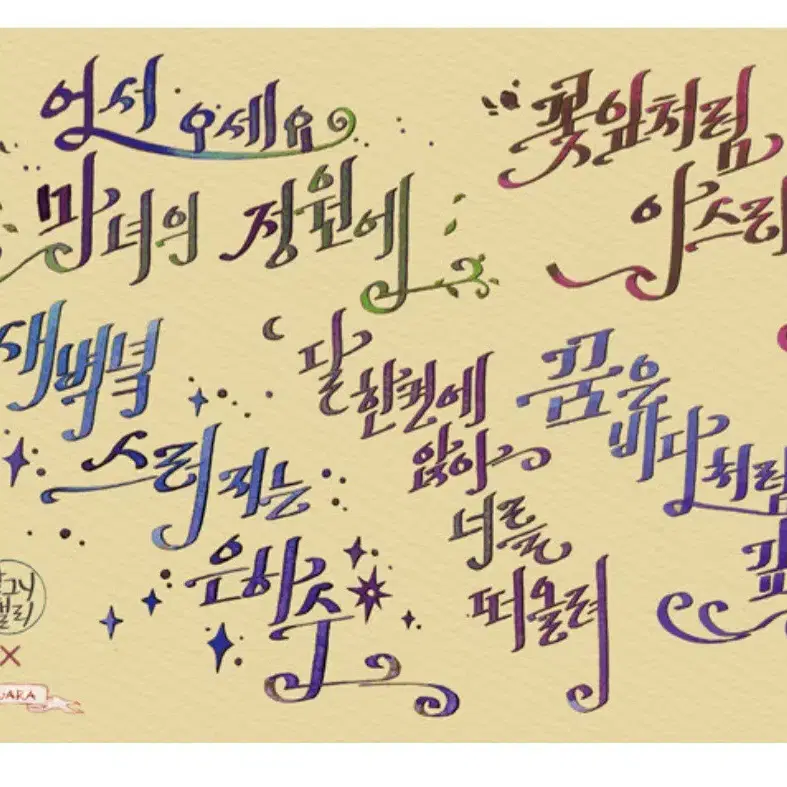 어서 오세요
마녀의 정원에
꽃잎처럼
아스라
새벽녘
스러지는
은하수
달
한켠에
앉아
너를
떠올려
꿈은
바다처럼